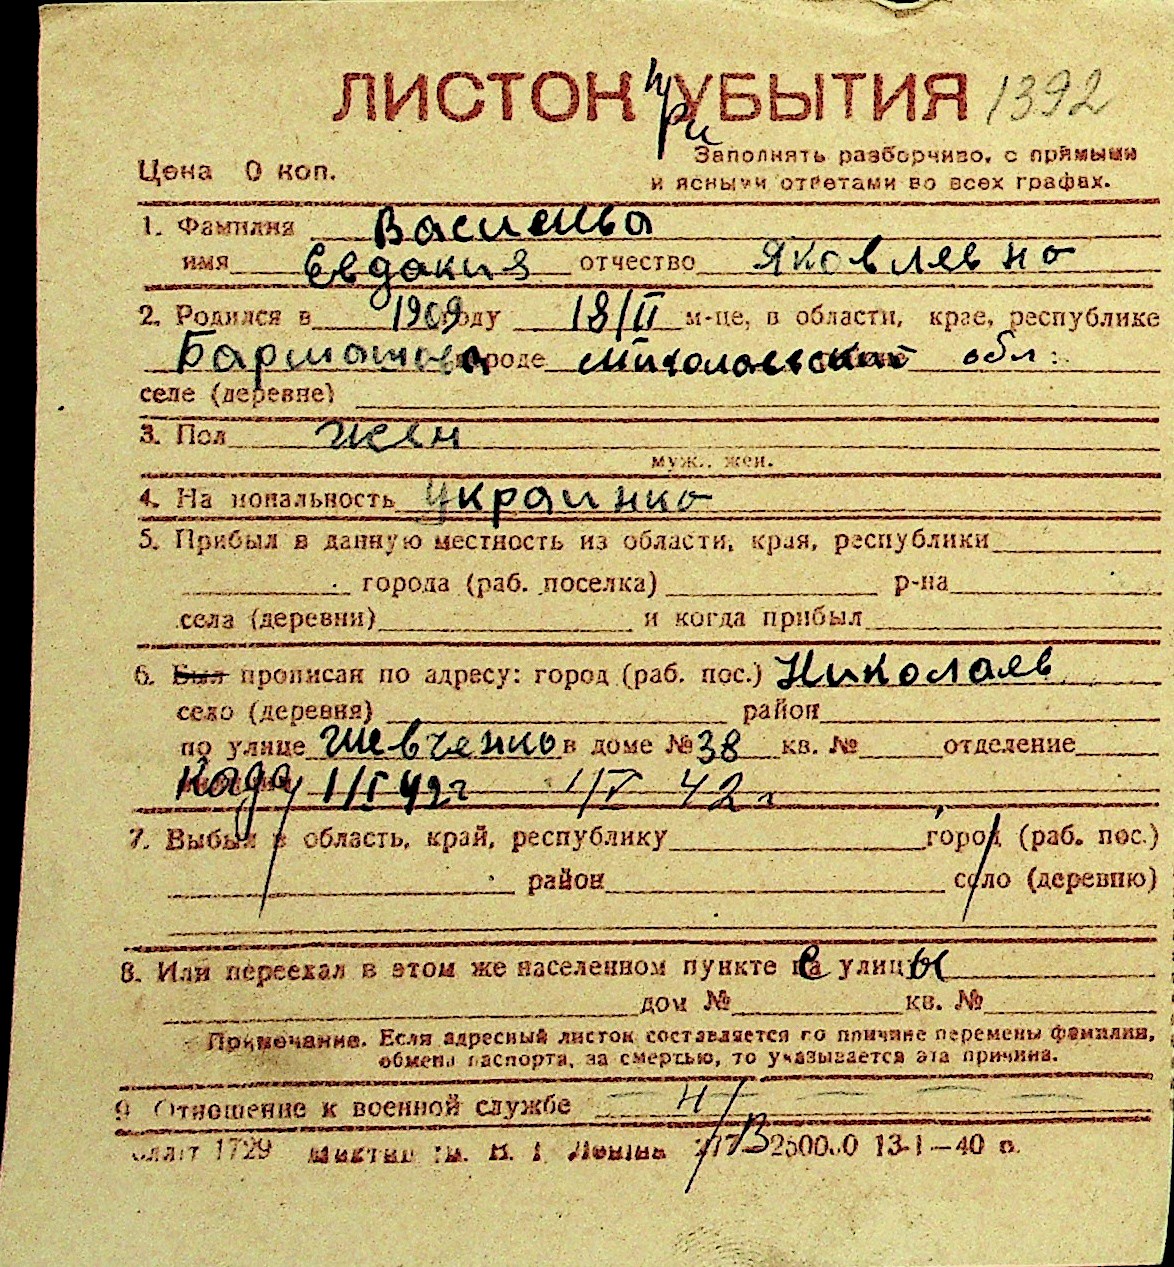 ЛИСТОК при УБЫТИЯ 1392
Цена 0 коп.
Заполнять разборчиво, с прямыми
и ясными ответами во всех графах.
1. Фамилия
имя Евдокия отчество Яковлевна
2. Родился в 1909 году 18/II м-це, в области, крае, республике
городе Миколаевской обл.
селе (деревне)
3. Пол жен
муж., жен.
4. Национальность Украинка
5. Прибыл в данную местность из области, края, республики
города (раб. поселка) р-на
села (деревни) и когда прибыл
6. Был прописан по адресу: город (раб. пос.) Николаев
село (деревня) район
по улице Шевченко в доме № 38 кв. № отделение
1/I 42г 1/V 42 г
7. Выбыл в область, край, республику город (раб. пос.)
район село (деревню)
8. Или переехал в этом же населенном пункте с улицы
дом № кв. №
Примечание. Если адресный листок составляется по причине перемены фамилии,
обмена паспорта, за смертью, то указывается эта причина.
9 Отношение к военной службе н/в
1729 13-I—40 г.